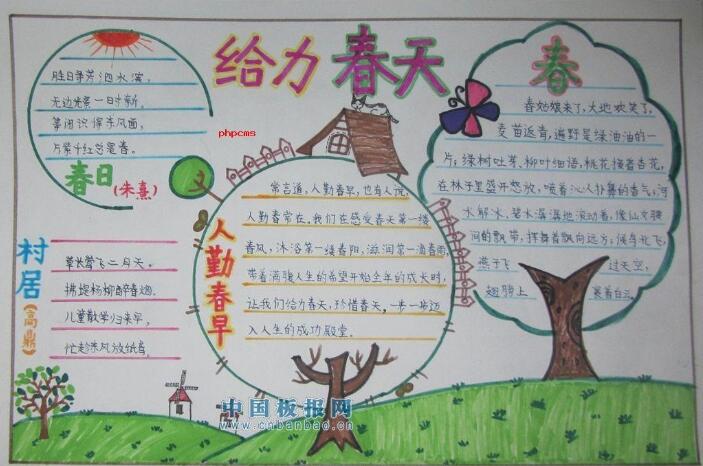 给力春天
phpcms
胜日寻芳泗水滨,
无边光景一日时新,
等闲识得东风面,
万紫千红总是春。
春日(朱熹)
村居(高鼎)
草长莺飞二月天。
拂堤杨柳醉春烟。
儿童散学归来早,
忙趁东风放纸鸢。
人勤春早
常言道,人勤春早,也有人说,
人勤春常在。我们在感受春天第一缕
春风,沐浴第一缕春阳,滋润第一滴春雨,
带着满腹人生的希望开始全年的成长时,
让我们给力春天,珍惜春天。一步一步迈
入人生的成功殿堂。
春
春姑娘来了,大地欢笑了,
麦苗返青,遍野是绿油油的一
片;绿树吐芽、柳叶细语,桃花拥着杏花,
在林子里盛开怒放,喷着沁人扑鼻的香气;河
水解冰,碧水潺潺地流动着,像仙女腰
间的飘带,挥舞着飘向远方;候鸟北飞,
燕子飞 过天空,
翅膀上 裹着白云。
中国板报网
www.cnbanbao.cn